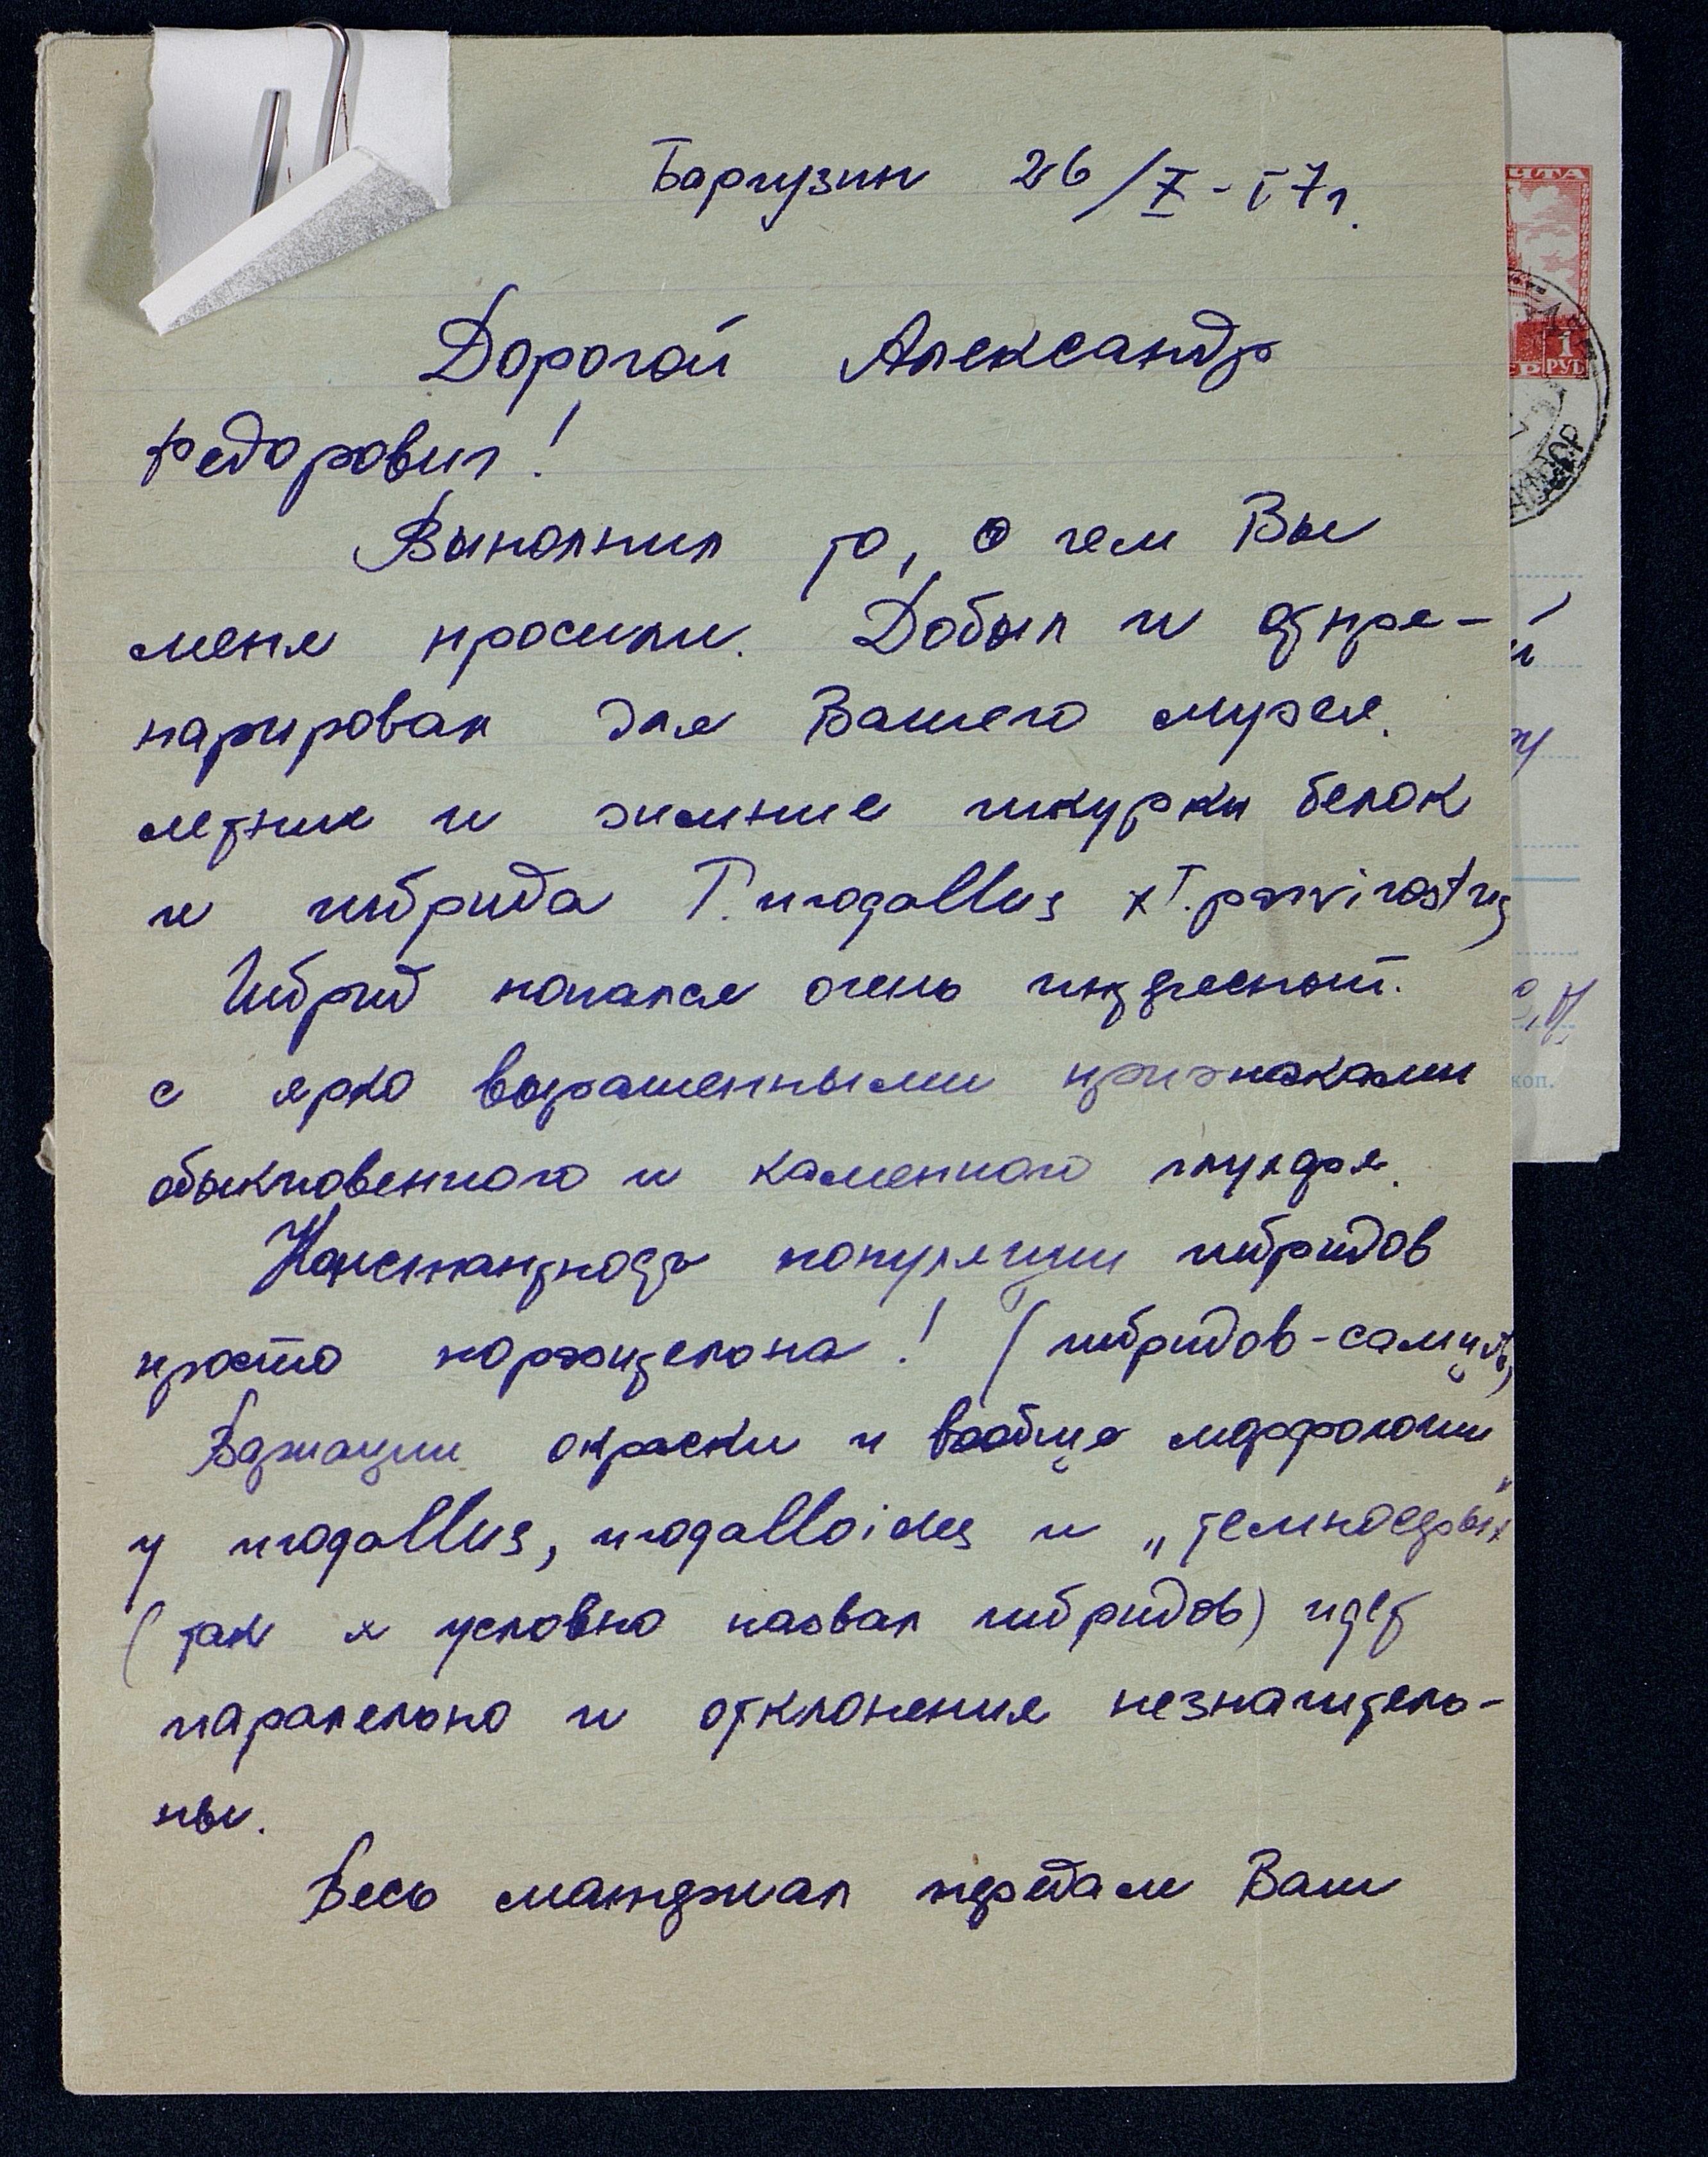 Баргузин 26/X-57г.
Дорогой Александр
Федорович!
Выполнил то, о чем Вы
меня просили. Добыл и отпре-
парировал для Вашего музея.
летние и зимние шкурки белок
и гибрида T. urogallus x T. parvirostris
Гибрид попался очень интересный.
с ярко выраженными признаками
обыкновенного и каменного глухаря.
Константность популяции гибридов
просто поразительна! (гибридов-самцов)
Вариации окраски и вообще морфологии
у urogallus, urogalloides и „темноспиных
(так я условно назвал гибридов) идет
паралельно и отклонения незначитель-
ны.
Весь материал передам Вам
ЧТА
1
РУБ
коп.